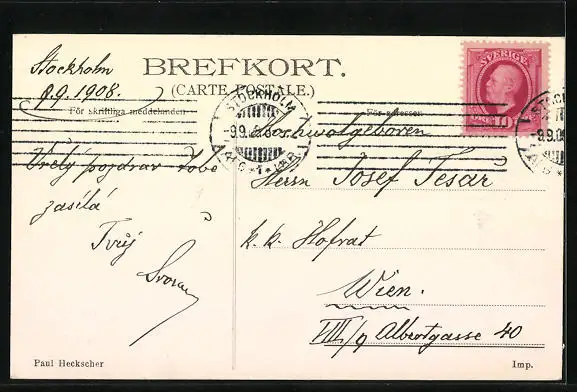 BREFKORT.
(CARTE POSTALE.)
Stockholm
8.9.1908.
För skriftliga meddelanden
Vřelý pozdrav Tobě
zasílá
Tvůj
För adressen
SVERIGE
10
STOCKHOLM
9.9.08
Hochwolgeboren
Herrn Josef Tesar
k. k. Hofrat
Wien.
VIII/9 Albertgasse 40
Paul Heckscher
Imp.